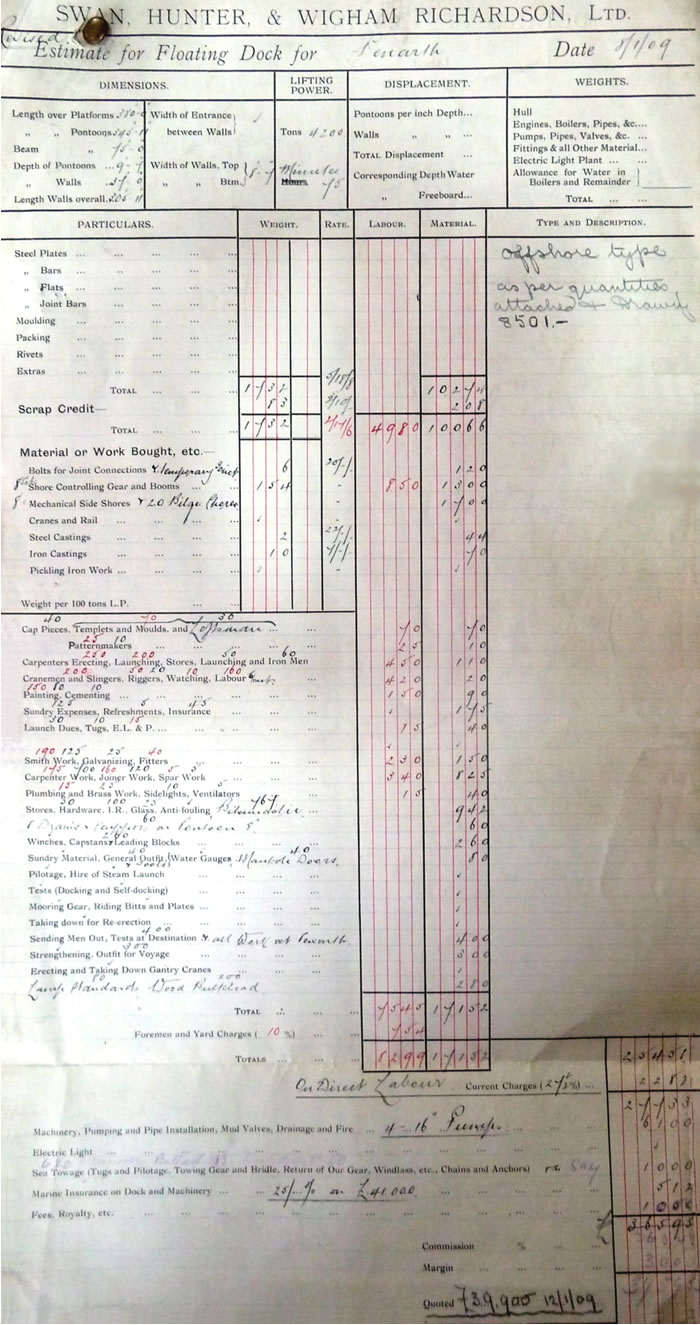 SWAN, HUNTER, & WIGHAM RICHARDSON, LTD.
Revised
Estimate for Floating Dock for Penarth Date 8/1/09
DIMENSIONS. LIFTING POWER. DISPLACEMENT. WEIGHTS.
Length over Platforms 380-0 Width of Entrance between Walls
" " Pontoons
Beam 75-0
Depth of Pontoons 9- Width of Walls, Top
" Walls 37-0 " " Btm.
Length Walls overall
Tons 4200
Minutes
Hours 75
Pontoons per inch Depth...
Walls " " ...
TOTAL Displacement ...
Corresponding Depth Water
" Freeboard...
Hull
Engines, Boilers, Pipes, &c....
Pumps, Pipes, Valves, &c. ...
Fittings & all Other Material...
Electric Light Plant ... ...
Allowance for Water in Boilers and Remainder
TOTAL ...
PARTICULARS. WEIGHT. RATE. LABOUR. MATERIAL. TYPE AND DESCRIPTION.
offshore type
as per quantities
attached & Drawing
8501.-
Steel Plates ... ... ... ...
" Bars ... ... ... ...
" Flats ... ... ... ...
" Joint Bars ... ... ...
Moulding ... ... ... ...
Packing ... ... ... ...
Rivets ... ... ... ...
Extras ... ... ... ...
TOTAL ... ... ... 1732 10274
Scrap Credit— 83 208
TOTAL ... ... ... 1732 4980 10066
Material or Work Bought, etc.—
Bolts for Joint Connections & temporary 6 20/-/- 120
Shore Controlling Gear and Booms ... 154 - 850 1300
8 Mechanical Side Shores & 20 Bilge Shores - 1700
Cranes and Rail ... ... ...
Steel Castings ... ... ... 2 22/-/- 44
Iron Castings ... ... ... 10 7/-/- 70
Pickling Iron Work ... ... ... -
Weight per 100 tons L.P.
40 70 30
Cap Pieces, Templets and Moulds, and Loftsman ... ... 70 70
25 10
Patternmakers ... ... ... 25 10
250 200 50 60
Carpenters Erecting, Launching, Stores, Launching and Iron Men 450 110
200 50 20 10 160
Cranemen and Slingers, Riggers, Watching, Labour ... 420 20
150 80 10
Painting, Cementing ... ... ... 150 90
125 5 45
Sundry Expenses, Refreshments, Insurance ... 175
30 10 15
Launch Dues, Tugs, E.L. & P. ... ... 15 40
190 125 25 40
Smith Work, Galvanizing, Fitters ... ... 230 150
175 700 160 120 5 5
Carpenter Work, Joiner Work, Spar Work ... 340 825
15 25 10 5
Plumbing and Brass Work, Sidelights, Ventilators ... 15 40
50 100 25 767
Stores, Hardware, I.R., Glass, Anti-fouling, Bitumastic 942
60
on Pontoon 60
260
Winches, Capstans, Leading Blocks ... ... 260
40 40
Sundry Material, General Outfit, Water Gauges, Manhole Doors. 80
Pilotage, Hire of Steam Launch ... ...
Tests (Docking and Self-docking) ... ...
Mooring Gear, Riding Bitts and Plates ... ...
Taking down for Re-erection ... ... ...
400
Sending Men Out, Tests at Destination & all Work at Penarth 400
300
Strengthening, Outfit for Voyage ... ... 300
Erecting and Taking Down Gantry Cranes ...
80 200
Lamp Standards Wood Bulkhead 280
TOTAL ... ... ... 7545 17152
Foremen and Yard Charges ( 10 %) ... 754
TOTALS ... ... ... 8299 17152 25451
On Direct Labour Current Charges (27½%) ... 2282
27733
Machinery, Pumping and Pipe Installation, Mud Valves, Drainage and Fire ... 4-16" Pumps. 6100
Electric Light ... ... ...
Sea Towage (Tugs and Pilotage, Towing Gear and Bridle, Return of Our Gear, Windlass, etc., Chains and Anchors) say 1000
Marine Insurance on Dock and Machinery ... 25/- % on £41,000 512
Fees, Royalty, etc. ... ... ... 1000
36595
Commission % ... ...
Margin ... ...
Quoted £39,900 12/1/09